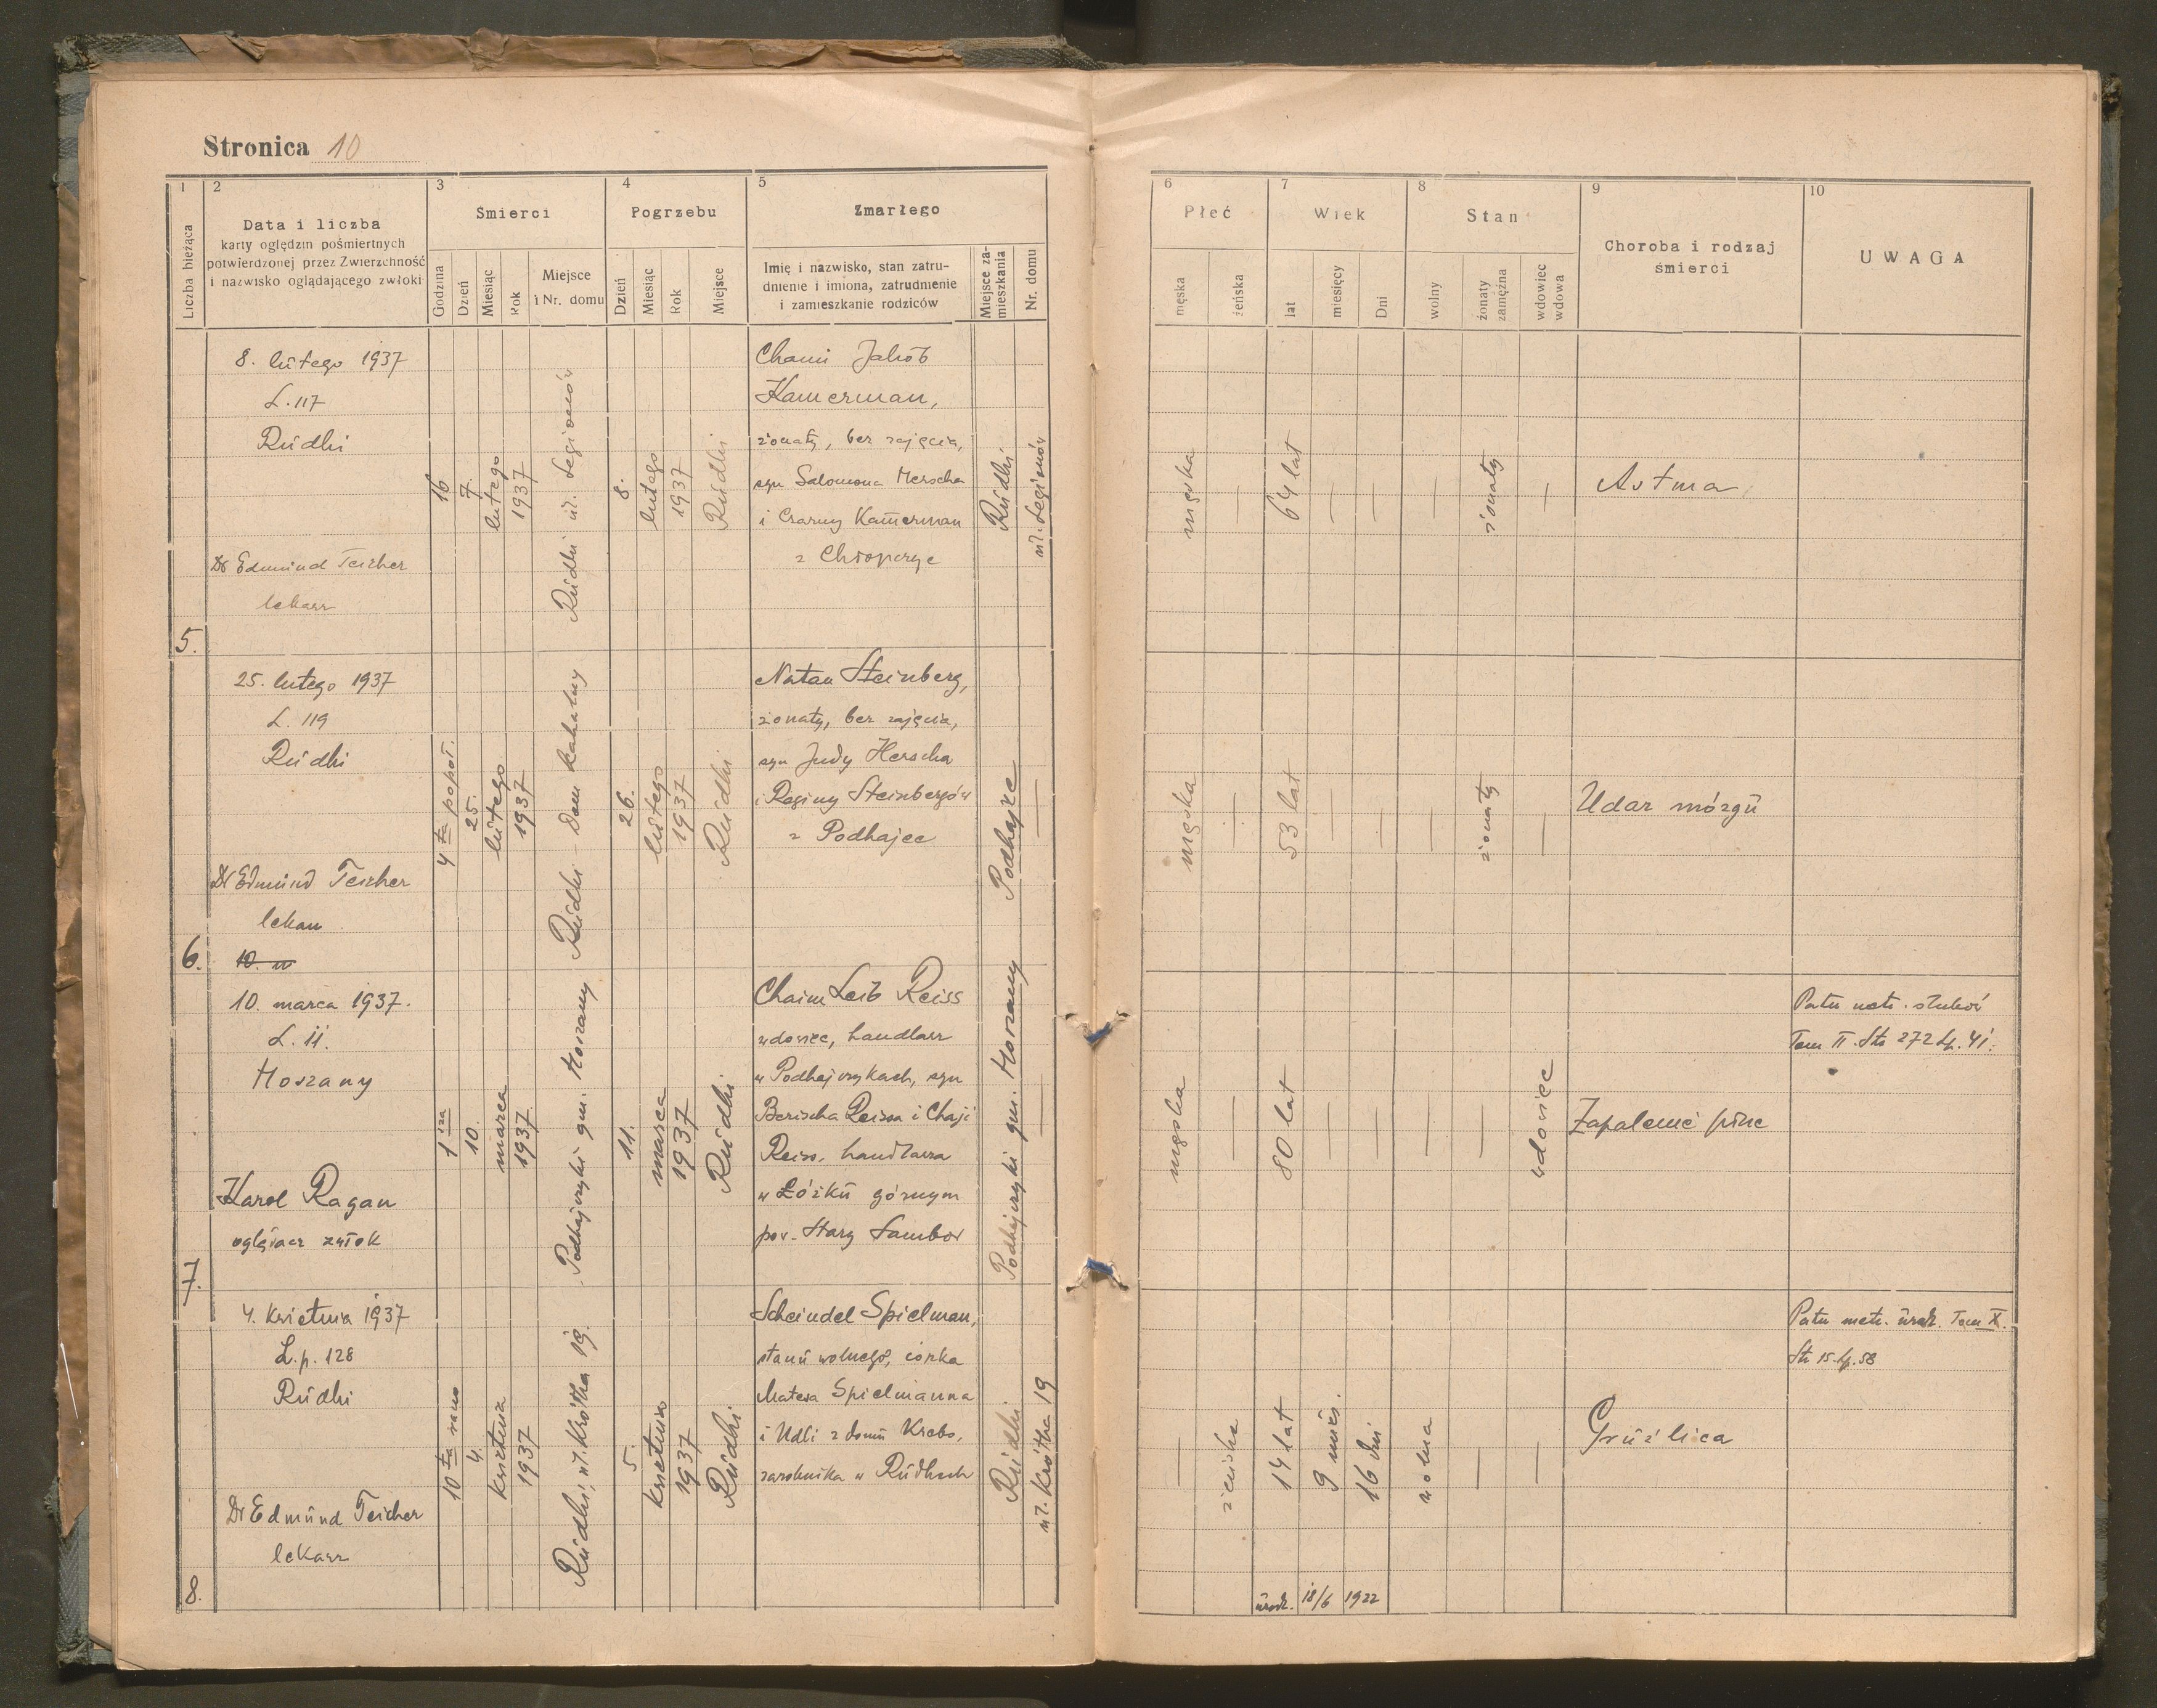 Stronica 10
1
2
3
4
5
Liczba bieżąca
Data i liczba
karty oględzin pośmiertnych
potwierdzonej przez Zwierzchność
i nazwisko oglądającego zwłoki
Śmierci
Godzina
Dzień
Miesiąc
Rok
Miejsce
i Nr. domu
Pogrzebu
Dzień
Miesiąc
Rok
Miejsce
Zmarłego
Imię i nazwisko, stan zatru-
dnienie i imiona, zatrudnienie
i zamieszkanie rodziców
Miejsce za-
mieszkania
Nr. domu
6
7
8
9
10
Płeć
męska
żeńska
Wiek
lat
miesięcy
Dni
Stan
wolny
żonaty
zamężna
wdowiec
wdowa
Choroba i rodzaj
śmierci
UWAGA
5.
8. lutego 1937
L. 117
Rudki
Dr Edmund Teicher
lekarz
16
7.
lutego
1937
Rudki ul. Legionów
8.
lutego
1937
Rudki
Chaim Jakób
Kamerman,
żonaty, bez zajęcia,
syn Salomona Herscha
i Czarny Kamerman
z Chłopczyc
Rudki
ul. Legionów
męska
—
64 lat
—
—
—
żonaty
—
Astma
6.
25. lutego 1937
L. 119
Rudki
Dr Edmund Teicher
lekarz
4 ta popoł.
25.
lutego
1937
Rudki - Dom kahalny
26.
lutego
1937
Rudki
Natan Steinberg,
żonaty, bez zajęcia,
syn Judy Herscha
i Reginy Steinbergów
z Podhajec
Podhajce
—
męska
—
53 lat
—
—
—
żonaty
—
Udar mózgu
7.
10. m
10. marca 1937.
L. 11.
Hoszany
Karol Ragan
oglądacz zwłok
1 sza
10.
marca
1937
Podhajczyki gm. Hoszany
11.
marca
1937
Rudki
Chaim Leib Reiss
wdowiec, handlarz
w Podhajczykach, syn
Berischa Reissa i Chaji
Reiss, handlarza
w Łóżku górnym
pow. Stary Sambor
Podhajczyki gm. Hoszany
—
męska
—
80 lat
—
—
—
—
wdowiec
Zapalenie płuc
Patrz metr. ślubów
Tom II. Str 272 Lp. 41.
8.
4. kwietnia 1937
L.p. 128
Rudki
Dr Edmund Teicher
lekarz
10 ta rano
4.
kwietnia
1937
Rudki, ul. Krótka 19.
5.
kwietnia
1937
Rudki
Scheindel Spielman,
stanu wolnego, córka
Matesa Spielmanna
i Udli z domu Krebs,
zarobnika w Rudkach
Rudki
ul. Krótka 19
—
żeńska
14 lat
9 mieś.
16 dni
wolna
—
—
Gruźlica
Patrz metr. urodz. Tom X.
Str 15. Lp. 58
urodz. 18/6 1922